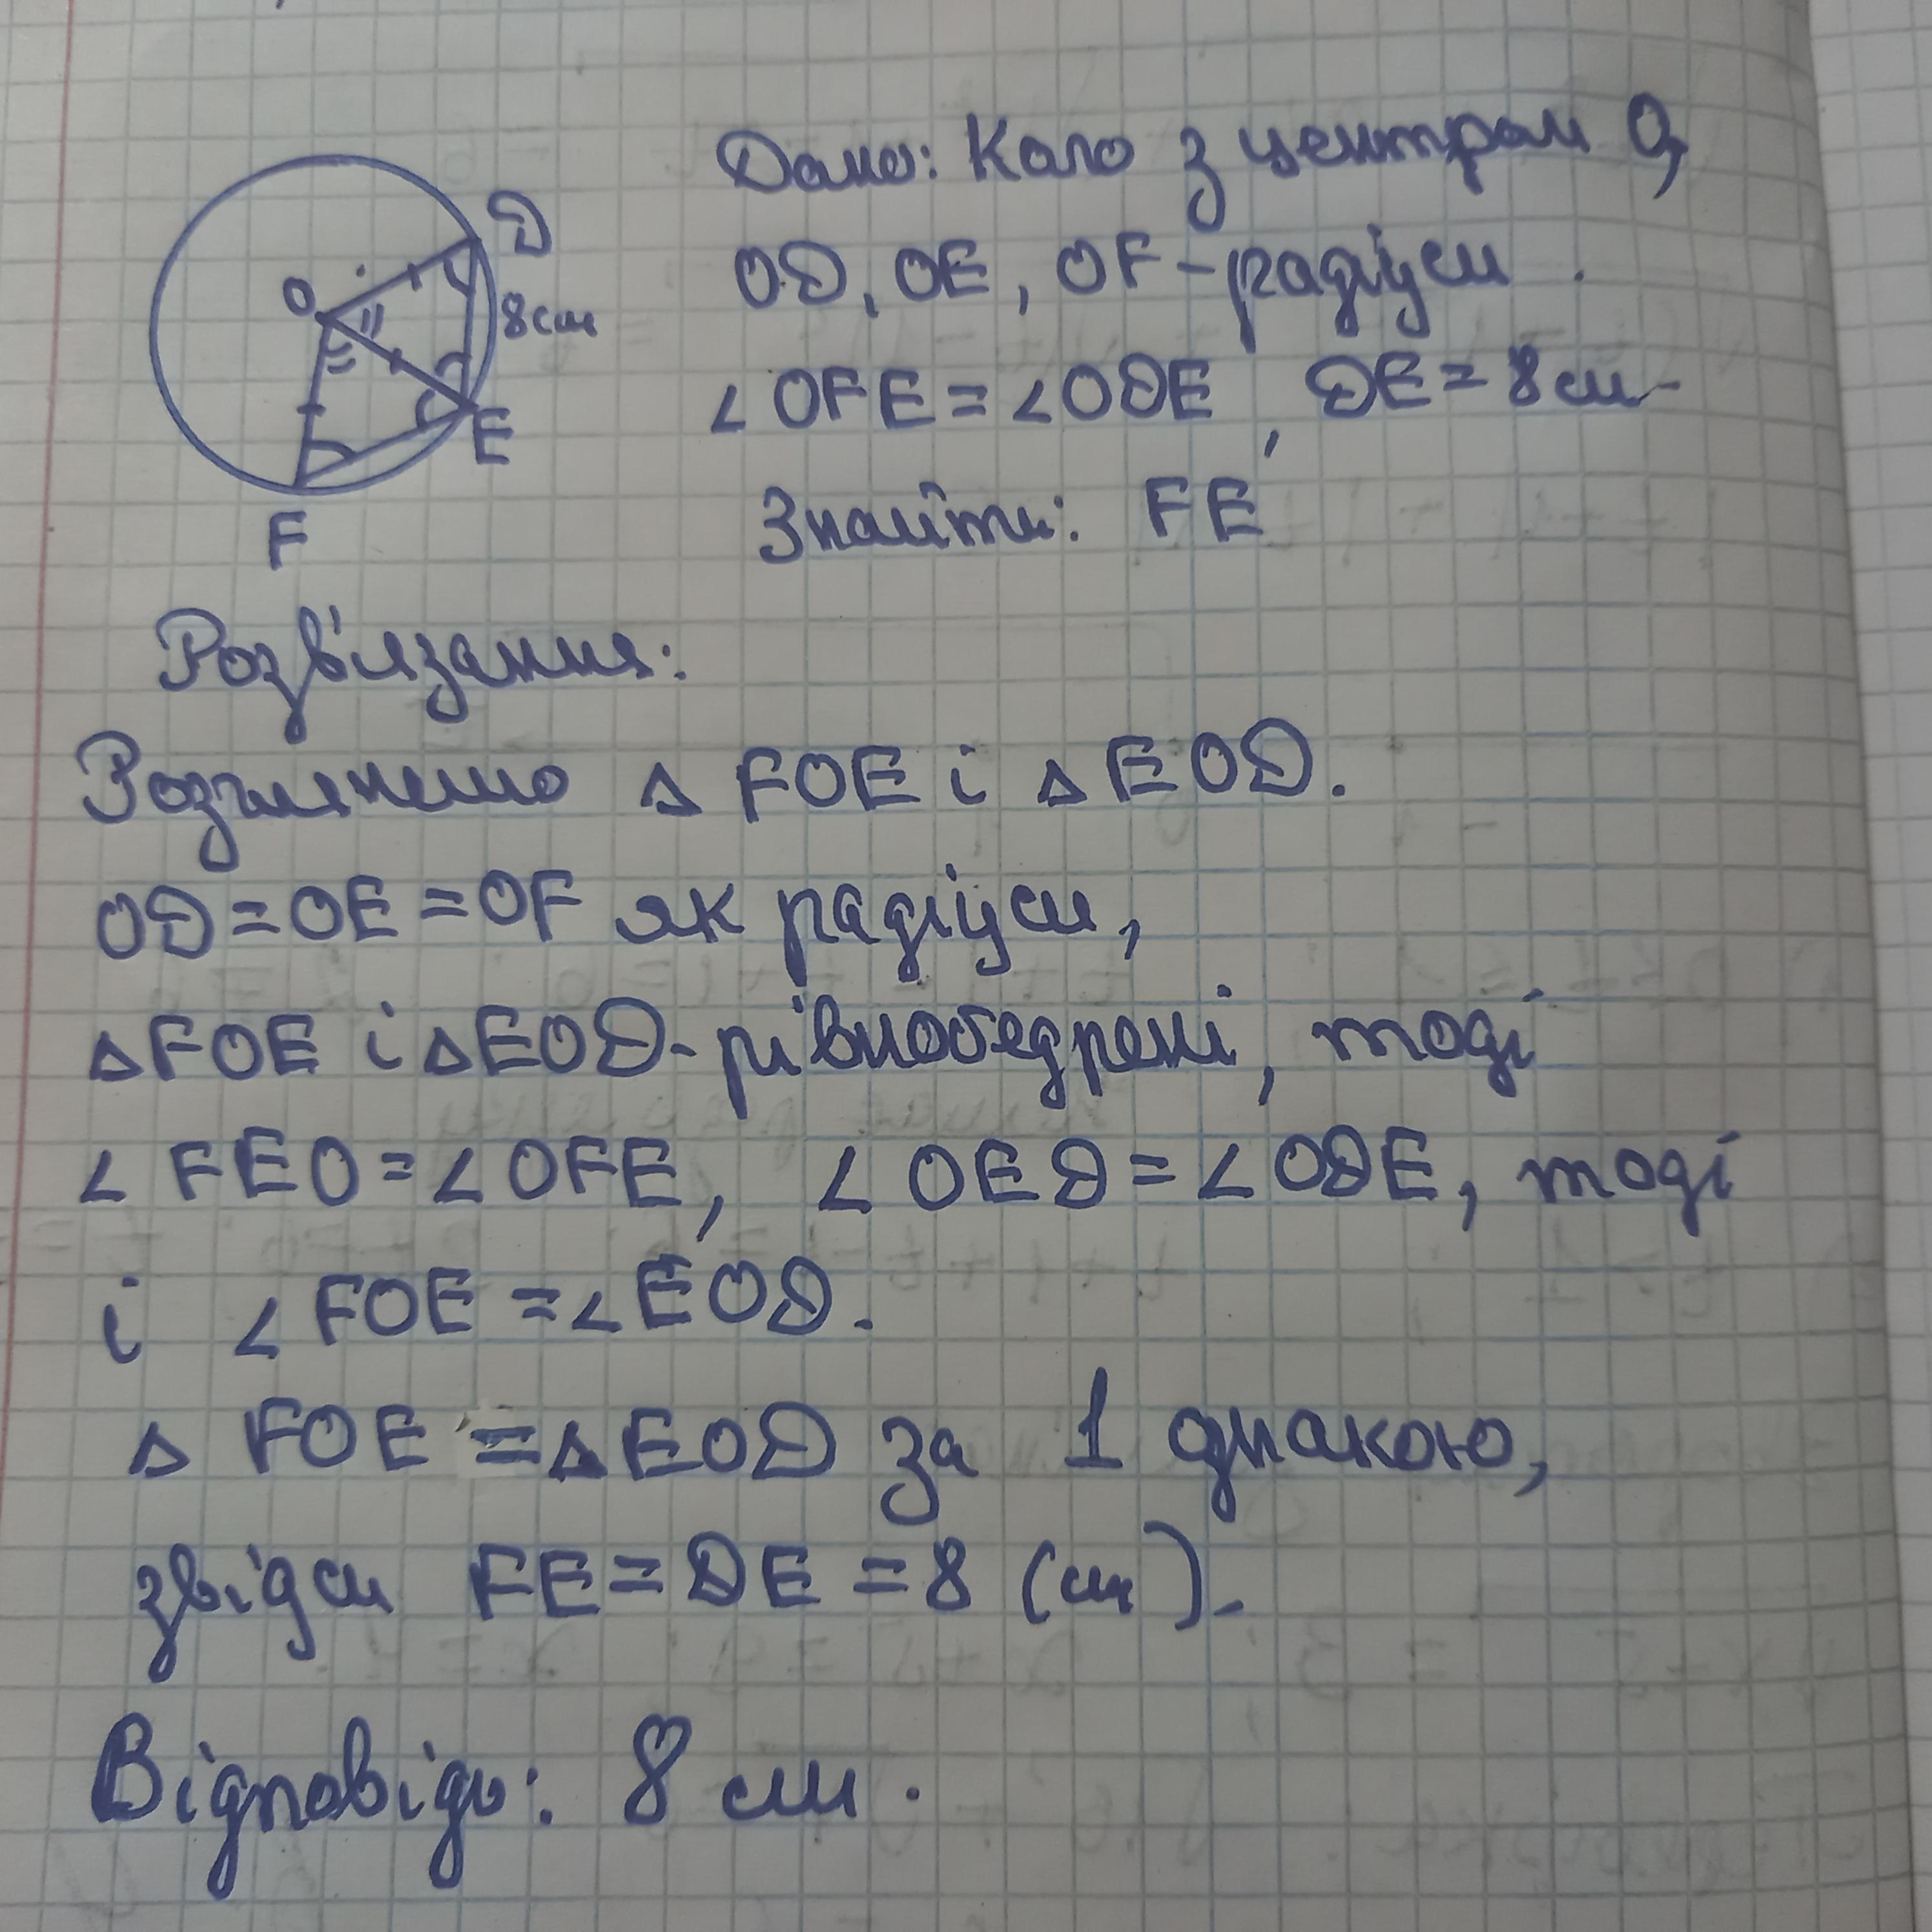 Дано: Коло з центром O,
OD, OE, OF - радіуси.
∠OFE = ∠ODE, DE = 8 см.
Знайти: FE
O
D
8 см
E
F
Розв'язання:
Розглянемо △ FOE і △ EOD.
OD = OE = OF як радіуси,
△FOE і △EOD - рівнобедрені, тоді
∠ FEO = ∠ OFE, ∠ OED = ∠ ODE, тоді
і ∠ FOE = ∠ EOD.
△ FOE = △ EOD за 1 ознакою,
звідси FE = DE = 8 (см).
Відповідь: 8 см.